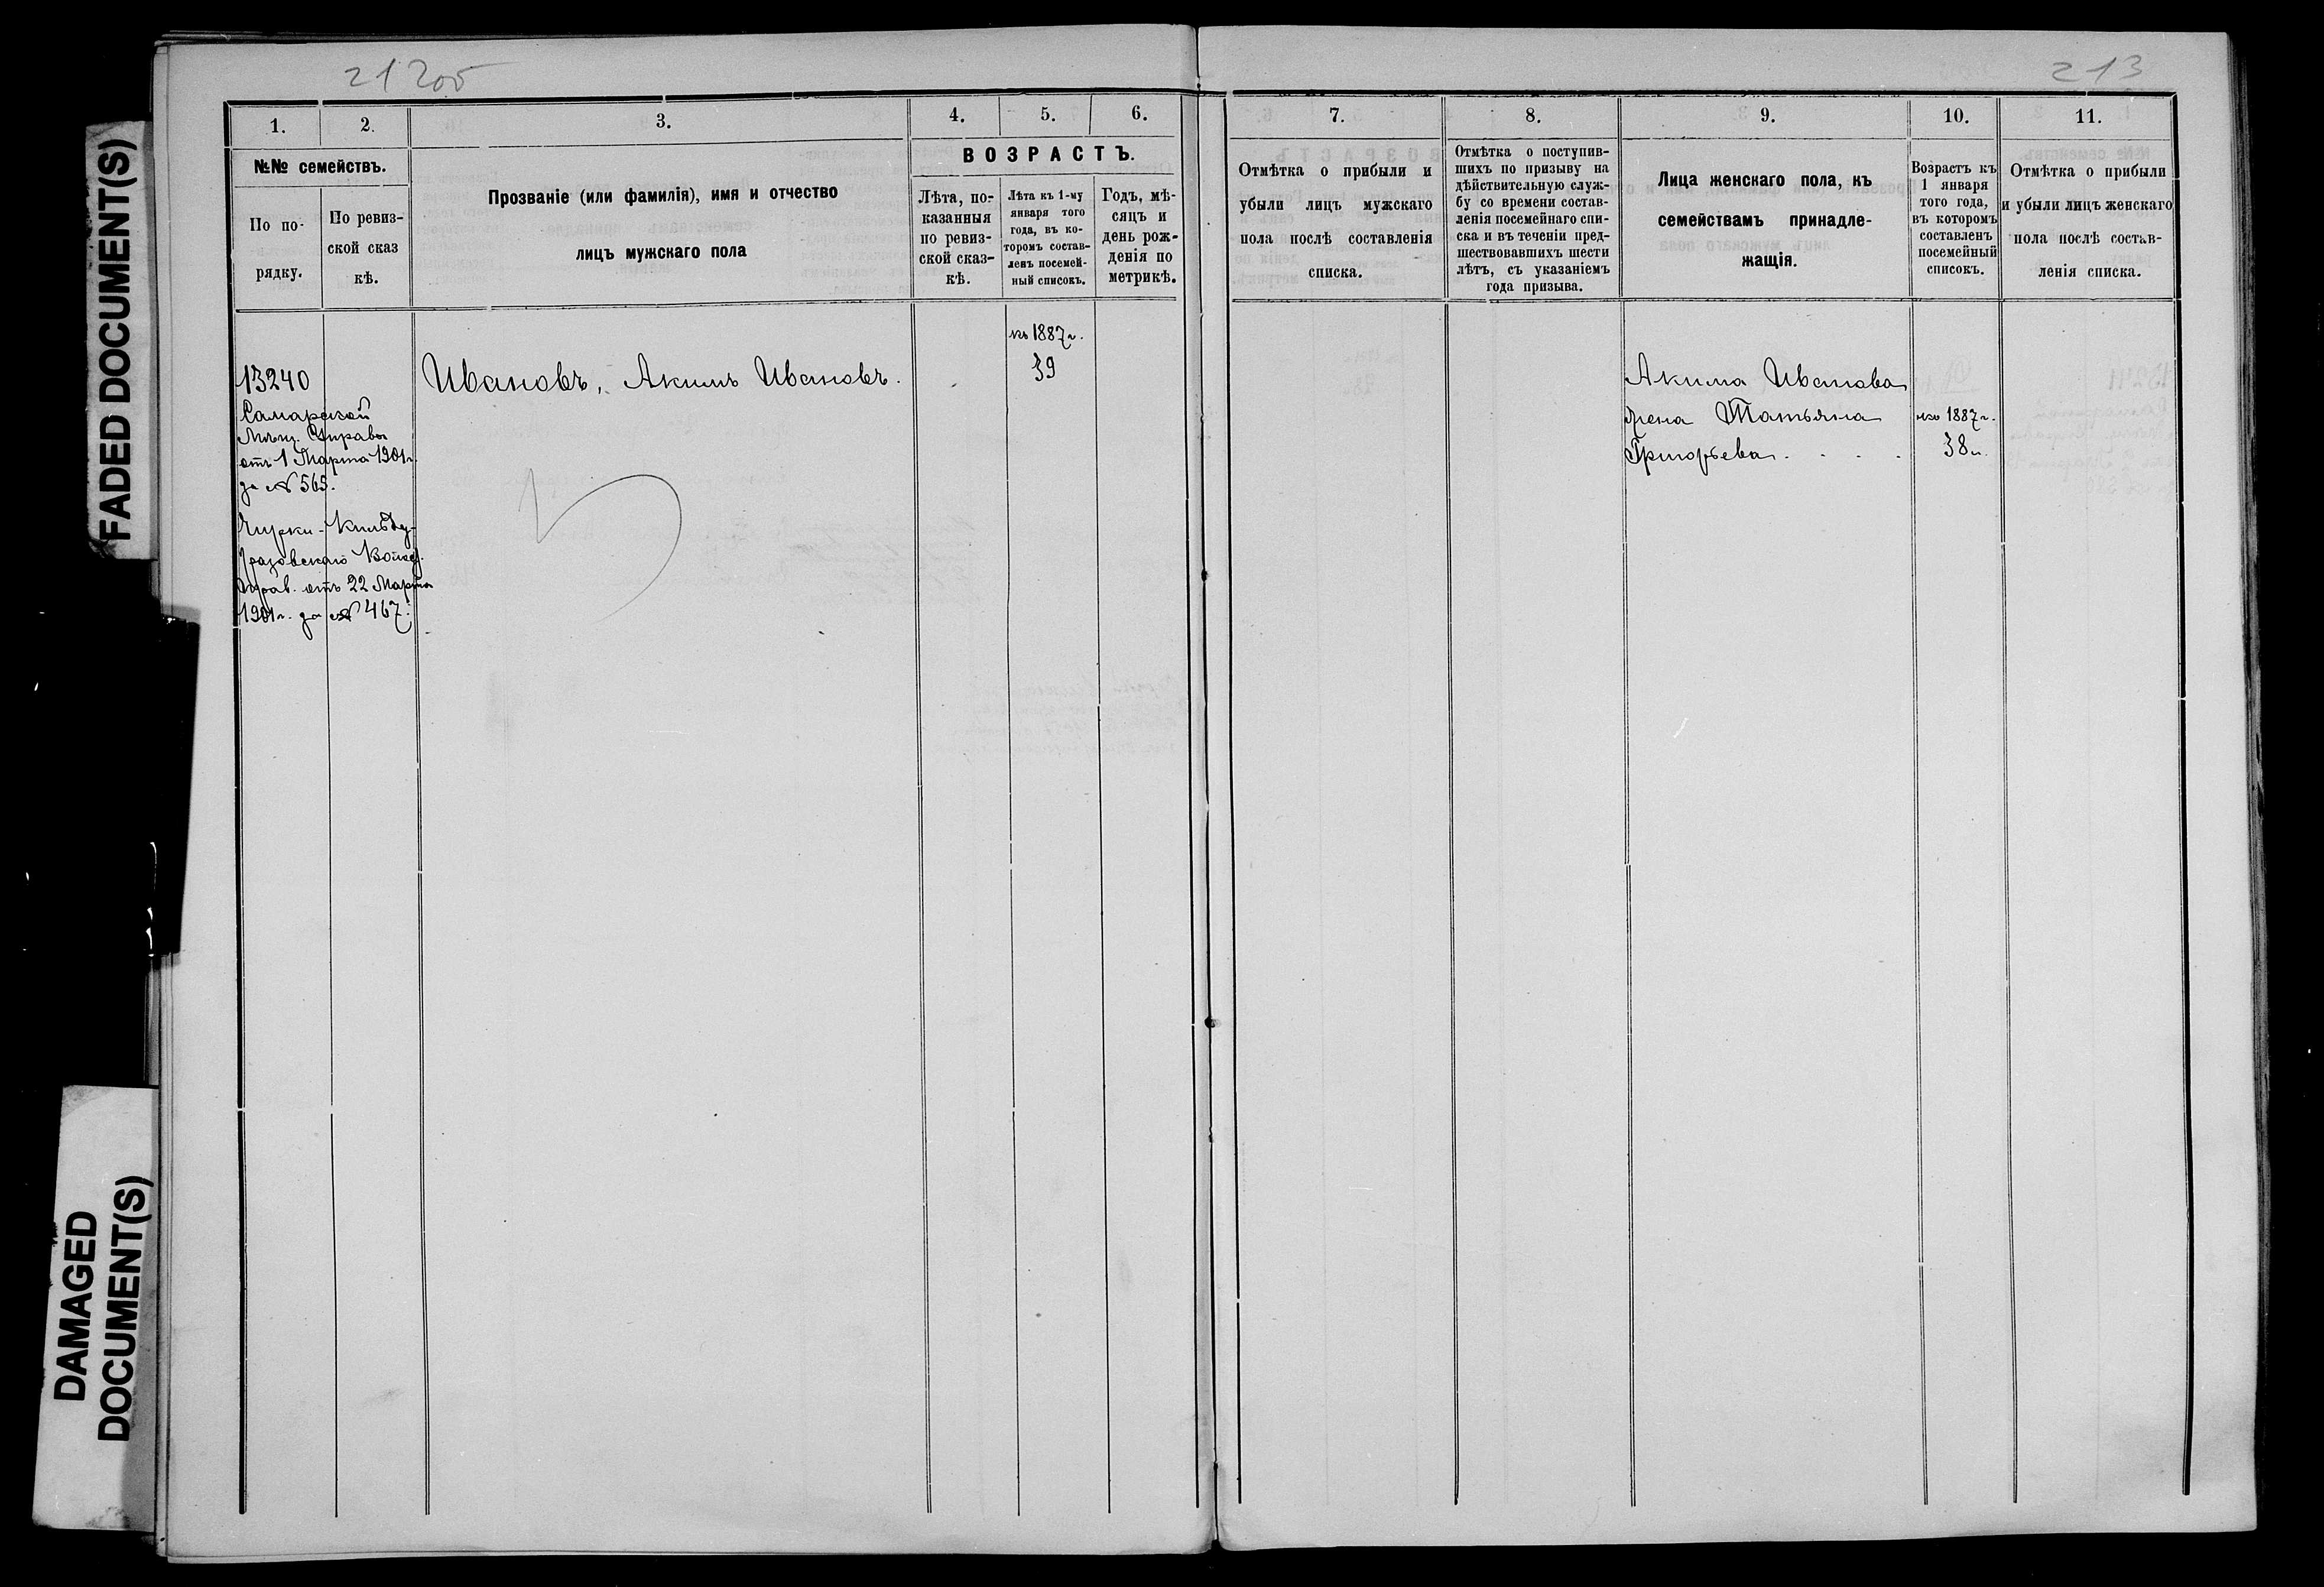 FADED DOCUMENT(S)
DAMAGED
DOCUMENT(S)
213
1.
2.
3.
4.
5.
6.
№№ семействъ.
По по-
рядку.
По ревиз-
ской сказ
кѣ.
Прозваніе (или фамилія), имя и отчество
лицъ мужскаго пола
ВОЗРАСТЪ.
Лѣта, по-
казанныя
по ревиз-
ской сказ-
кѣ.
Лѣта къ 1-му
января того
года, въ ко-
торомъ состав-
ленъ посемей-
ный списокъ.
Годъ, мѣ-
сяцъ и
день рож-
денія по
метрикѣ.
7.
8.
9.
10.
11.
Отмѣтка о прибыли и
убыли лицъ мужскаго
пола послѣ составленія
списка.
Отмѣтка о поступив-
шихъ по призыву на
дѣйствительную служ-
бу со времени состав-
ленія посемейнаго спи-
ска и въ теченіи пред-
шествовавшихъ шести
лѣтъ, съ указаніемъ
года призыва.
Лица женскаго пола, къ
семействамъ принадле-
жащія.
Возрастъ къ
1 января
того года,
въ которомъ
составленъ
посемейный
списокъ.
Отмѣтка о прибыли
и убыли лицъ женскаго
пола послѣ состав-
ленія списка.
13240
Самарской
Мѣщ. Управы
отъ 1 Марта 1901 г.
за № 565.
Чирки-Кильду-
разовскаго Волост.
Прав. отъ 22 Марта
1901 г. за № 467.
Ивановъ, Акимъ Ивановъ.
къ 1887 г.
39
Акима Иванова
жена Татьяна
Григорьева . . . .
къ 1887 г.
38 л.